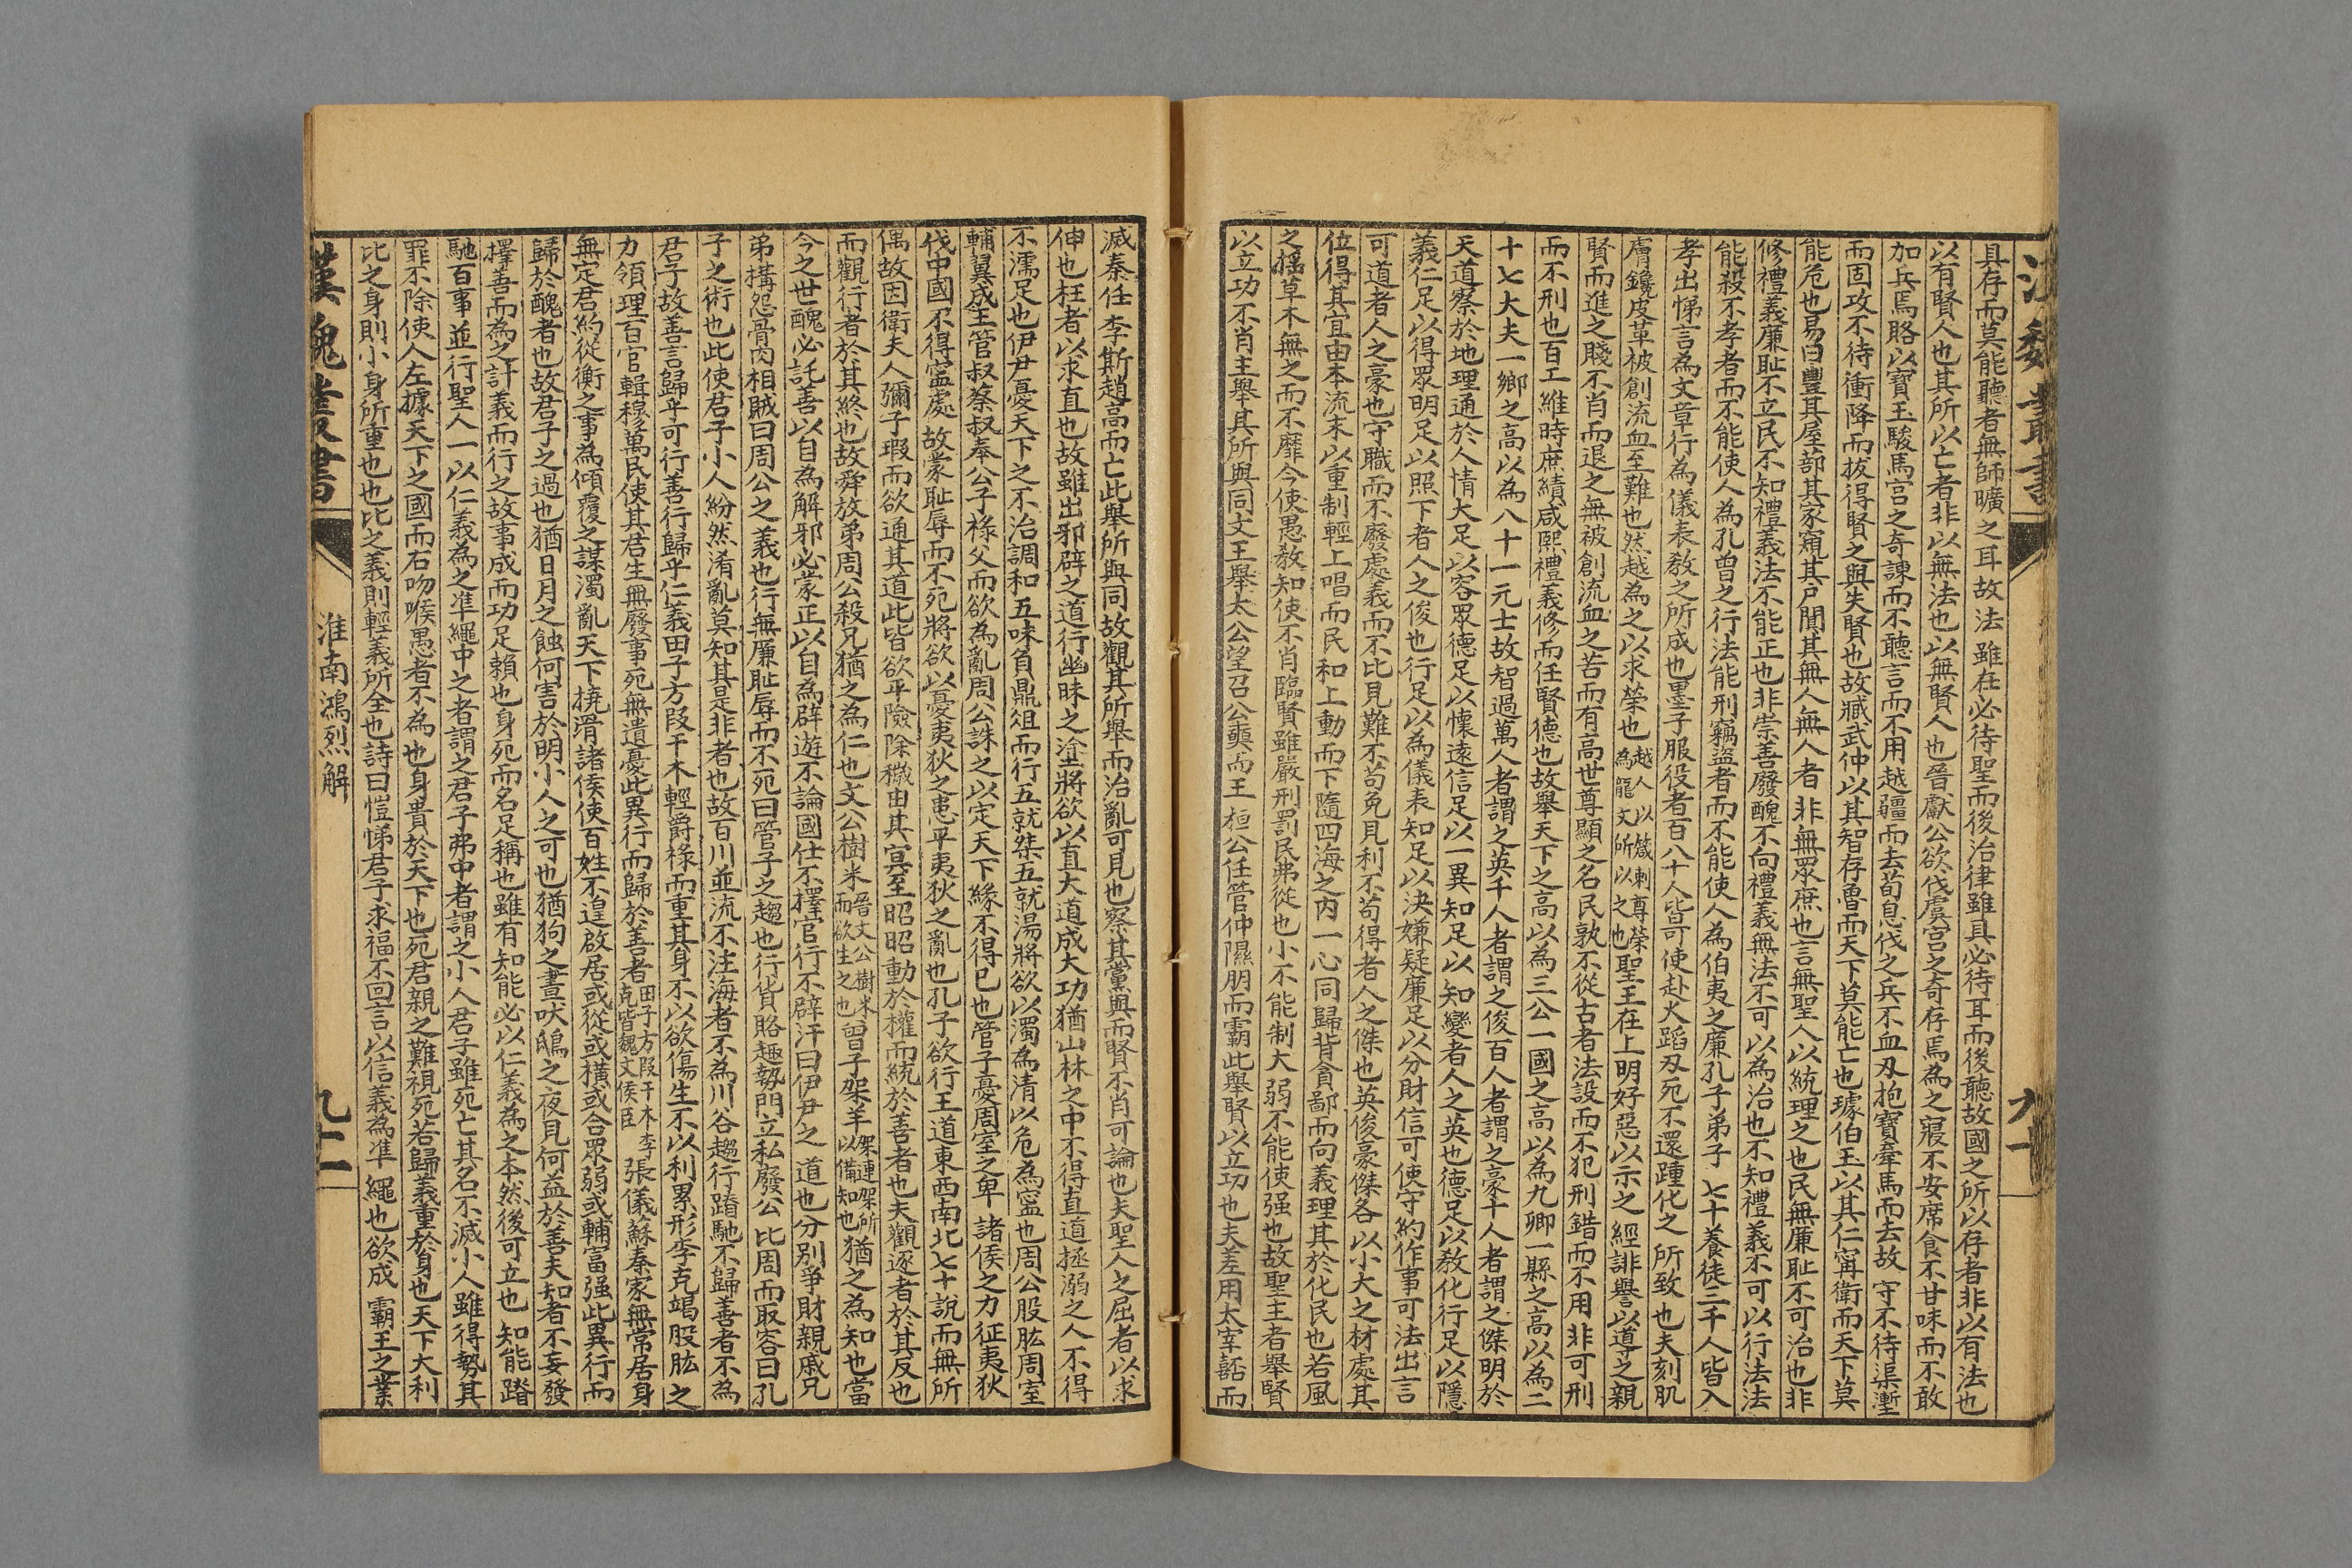 漢魏叢書
九十一
具存而莫能聽者無師曠之耳故法雖在必待聖而後治律雖具必待耳而後聽故國之所以存者非以有法也
以有賢人也其所以亡者非以無法也以無賢人也晉獻公欲伐虞宮之奇存焉為之寢不安席食不甘味而不敢
加兵焉賂以寶玉駿馬宮之奇諫而不聽言而不用越疆而去荀息伐之兵不血刃抱寶牽馬而去故守不待渠壍
而固攻不待衝降而拔得賢之與失賢也故臧武仲以其智存魯而天下莫能亡也璩伯玉以其仁寗衛而天下莫
能危也易曰豐其屋蔀其家窺其戸闃其無人無人者非無眾庶也言無聖人以統理之也民無廉耻不可治也非
修禮義廉耻不立民不知禮義法不能正也非崇善廢醜不向禮義無法不可以為治也不知禮義不可以行法法
能殺不孝者而不能使人為孔曾之行法能刑竊盜者而不能使人為伯夷之廉孔子弟子七十養徒三千人皆入
孝出悌言為文章行為儀表教之所成也墨子服役者百八十人皆可使赴火蹈刃死不還踵化之所致也夫刻肌
膚鑱皮革被創流血至難也然越為之以求榮也越人以箴刺為龍文所以尊榮之也聖王在上明好惡以示之經誹譽以導之親
賢而進之賤不肖而退之無被創流血之苦而有高世尊顯之名民孰不從古者法設而不犯刑錯而不用非可刑
而不刑也百工維時庶績咸熙禮義修而任賢德也故舉天下之高以為三公一國之高以為九卿一縣之高以為二
十七大夫一鄉之高以為八十一元士故智過萬人者謂之英千人者謂之俊百人者謂之豪十人者謂之傑明於
天道察於地理通於人情大足以容眾德足以懷遠信足以一異知足以知變者人之英也德足以教化行足以隱
義仁足以得眾明足以照下者人之俊也行足以為儀表知足以決嫌疑廉足以分財信可使守約作事可法出言
可道者人之豪也守職而不廢處義而不比見難不苟免見利不苟得者人之傑也英俊豪傑各以小大之材處其
位得其宜由本流末以重制輕上唱而民和上動而下隨四海之内一心同歸背貪鄙而向義理其於化民也若風
之搖草木無之而不靡今使愚教知使不肖臨賢雖嚴刑罰民弗從也小不能制大弱不能使强也故聖主者舉賢
以立功不肖主舉其所與同文王舉太公望召公奭而王桓公任管仲隰朋而霸此舉賢以立功也夫差用太宰嚭而
滅秦任李斯趙高而亡此舉所與同故觀其所舉而治亂可見也察其黨與而賢不肖可論也夫聖人之屈者以求
伸也枉者以求直也故雖出邪辟之道行幽昧之塗將欲以直大道成大功猶山林之中不得直道拯溺之人不得
不濡足也伊尹憂天下之不治調和五味負鼎俎而行五就桀五就湯將欲以濁為清以危為寧也周公股肱周室
輔翼成王管叔蔡叔奉公子祿父而欲為亂周公誅之以定天下緣不得已也管子憂周室之卑諸侯之力征夷狄
伐中國不得寧處故蒙耻辱而不死將欲以憂夷狄之患平夷狄之亂也孔子欲行王道東西南北七十說而無所
偶故因衛夫人彌子瑕而欲通其道此皆欲平險除穢由其冥至昭昭動於權而統於善者也夫觀逐者於其反也
而觀行者於其終也故舜放弟周公殺兄猶之為仁也文公樹米晉文公樹米而欲生之也曾子架羊架連架所以備知也猶之為知也當
今之世醜必託善以自為解邪必蒙正以自為辟遊不論國仕不擇官行不辟汙曰伊尹之道也分別爭財親戚兄
弟搆怨骨肉相賊曰周公之義也行無廉耻辱而不死曰管子之趨也行貨賂趣勢門立私廢公比周而取容曰孔
子之術也此使君子小人紛然淆亂莫知其是非者也故百川並流不注海者不為川谷趨行蹐馳不歸善者不為
君子故善言歸乎可行善行歸乎仁義田子方段干木輕爵祿而重其身不以欲傷生不以利累形李克竭股肱之
力領理百官輯穆萬民使其君生無廢事死無遺憂此異行而歸於善者田子方段干木李克皆魏文侯臣張儀蘇秦家無常居身
無定君約從衡之事為傾覆之謀濁亂天下撓滑諸侯使百姓不遑啟居或從或橫或合眾弱或輔富强此異行而
歸於醜者也故君子之過也猶日月之蝕何害於明小人之可也猶狗之晝吠鴟之夜見何益於善夫知者不妄發
擇善而為之計義而行之故事成而功足賴也身死而名足稱也雖有知能必以仁義為之本然後可立也知能蹐
馳百事並行聖人一以仁義為之準繩中之者謂之君子弗中者謂之小人君子雖死亡其名不滅小人雖得勢其
罪不除使人左據天下之國而右吻喉愚者不為也身貴於天下也死君親之難視死若歸義重於身也天下大利
比之身則小身所重也也比之義則輕義所全也詩曰愷悌君子求福不回言以信義為準繩也欲成霸王之業
漢魏叢書
淮南鴻烈解
九十一